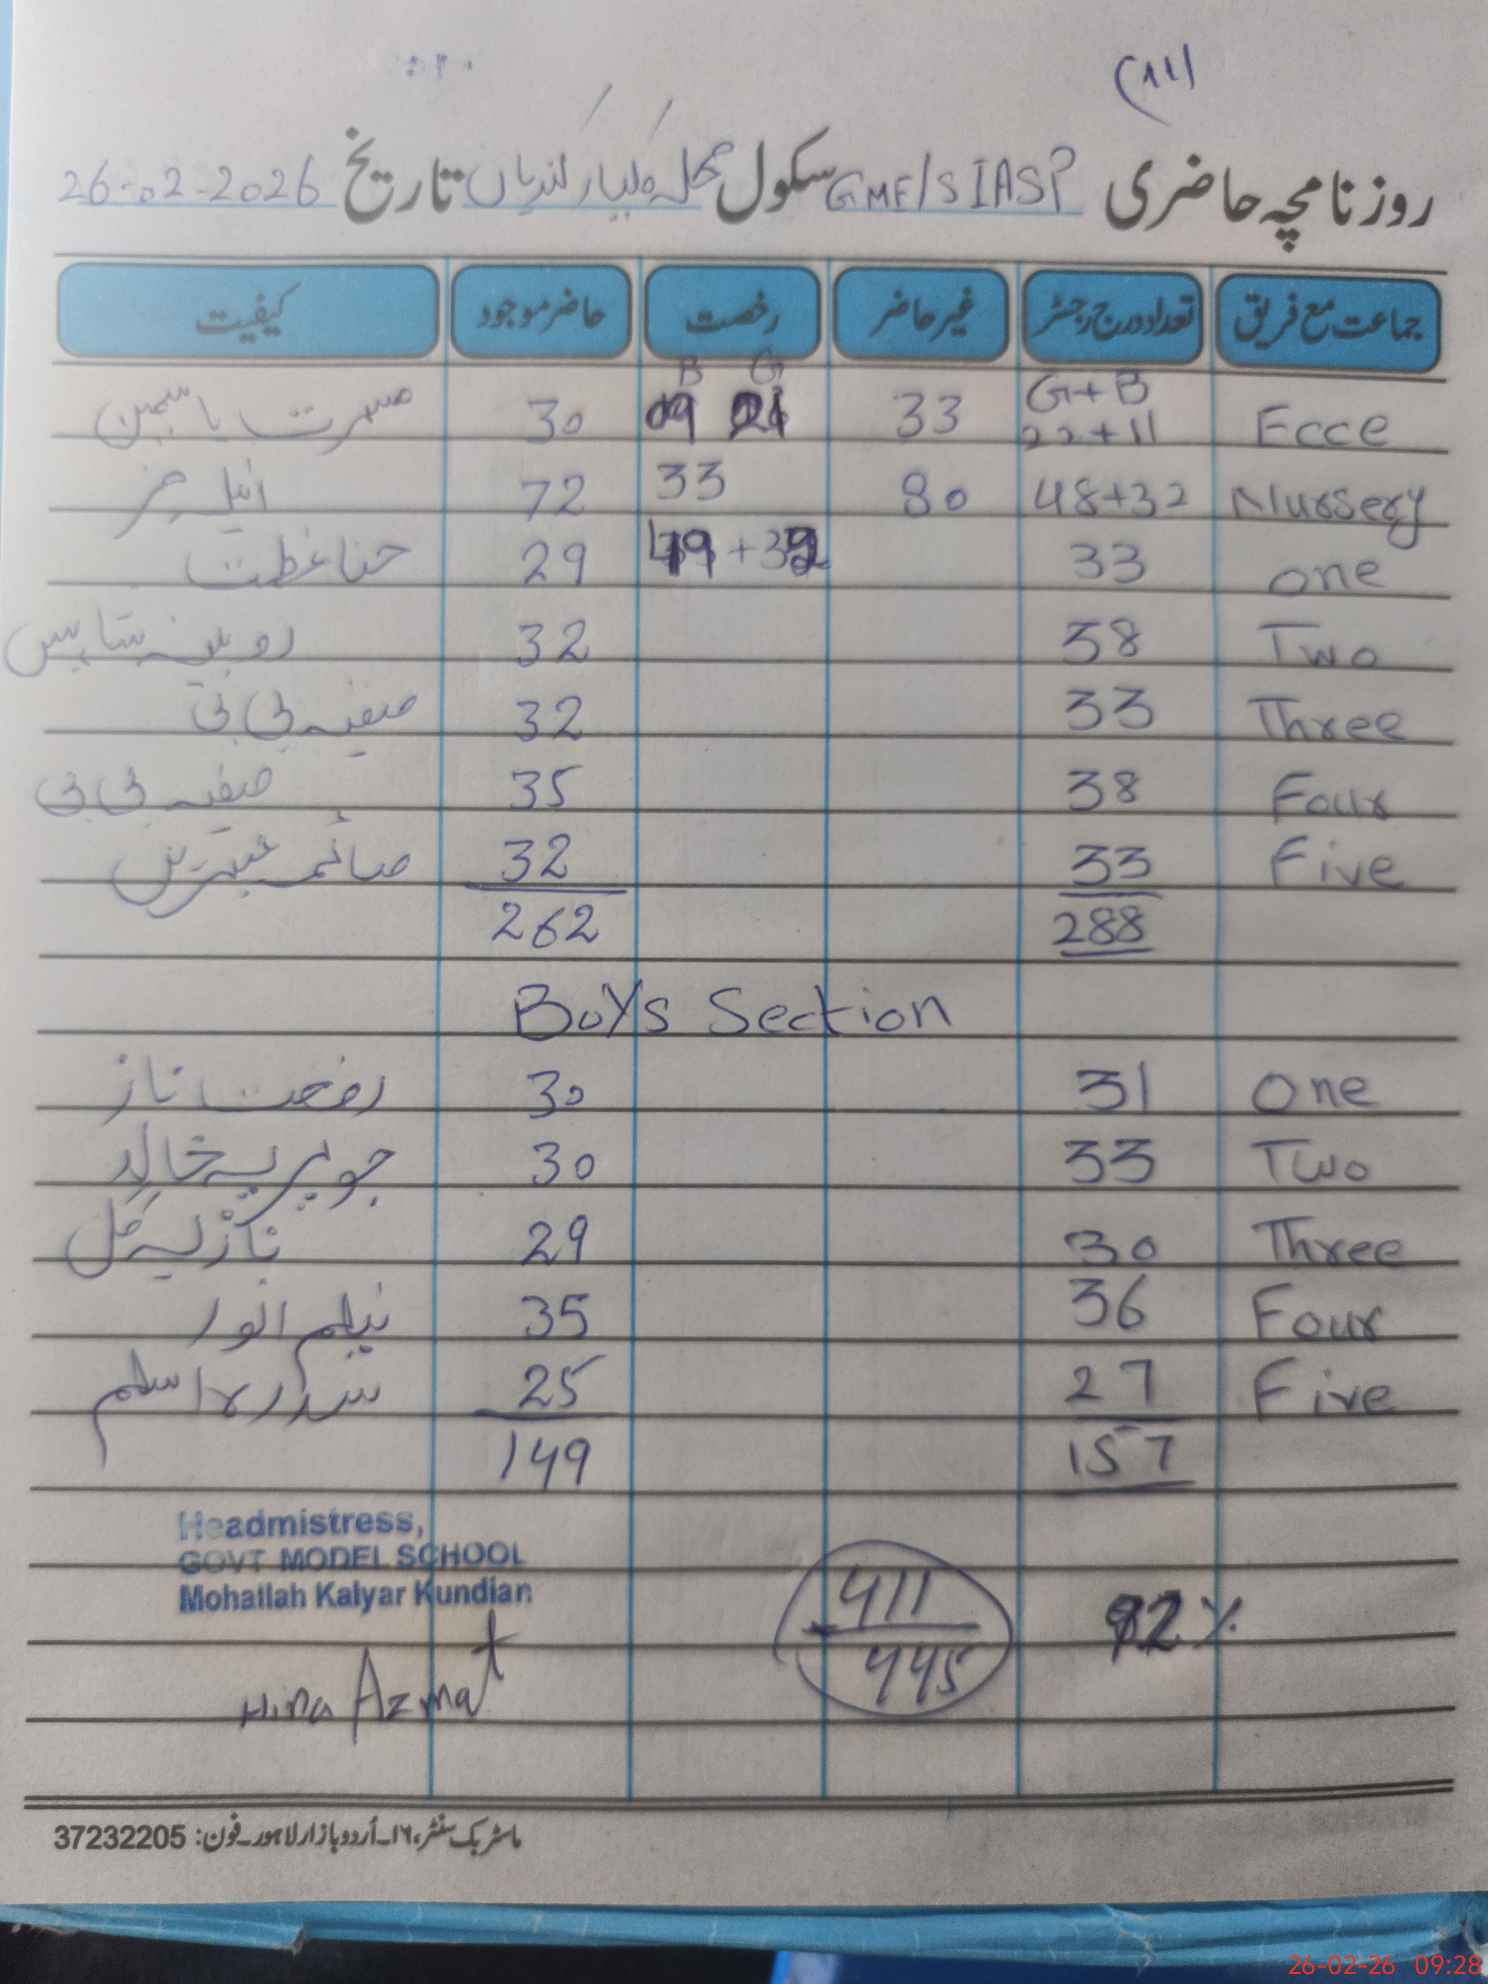 (۱۸۱
روزنامچہ حاضری GME/S IASP سکول محلہ کلیار کندیاں تاریخ 26-02-2026
جماعت مع فریق تعداد درج رجسٹر غیر حاضر رخصت حاضر موجود کیفیت
Ecce G+B 22+11 33 B G 09 21 30 مسرت یاسمین
Nursery 48+32 80 33 72
one 33 + 29 حنا عظمت
Two 38 32 روبینہ شاہین
Three 33 32 صفیہ بی بی
Four 38 35 صفیہ بی بی
Five 33 32 صائمہ عنبرین
288 262
Boys Section
One 31 30 رفعت ناز
Two 33 30 جویریہ خالد
Three 30 29 نازلیہ گل
Four 36 35 نیلم انور
Five 27 25 سدرہ اسلم
157 149
Headmistress,
GOVT MODEL SCHOOL
Mohallah Kalyar Kundian
411
445
92%
Hina Azmat
ماسٹر بک سنٹر، ۱۶۔اُردو بازار لاہور۔فون: 37232205
26-02-26 09:28